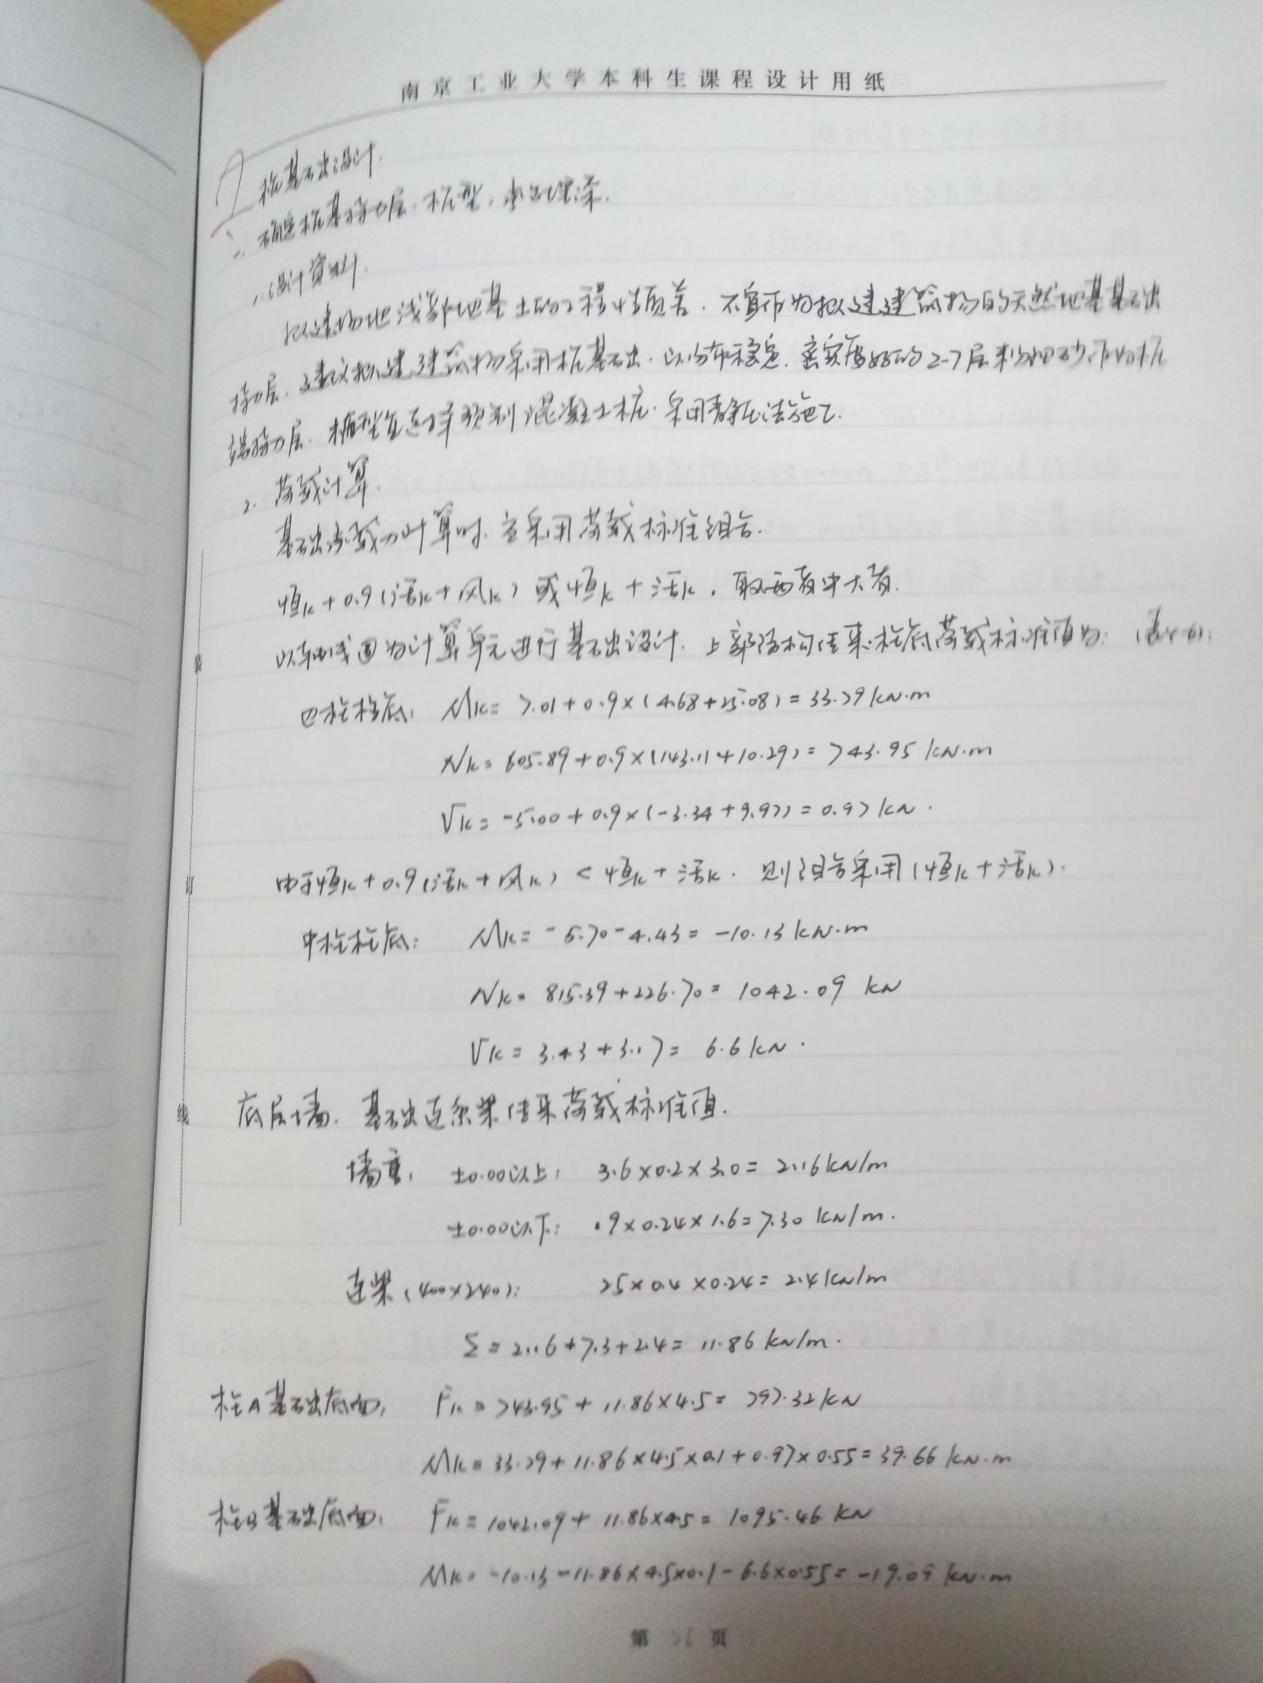 南京工业大学本科生课程设计用纸
桩基础设计.
一、确定桩基持力层、桩型、承台埋深.
1、设计资料.
拟建场地浅部地基土的工程性质差.不宜作为拟建建筑物的天然地基基础
持力层.建议拟建建筑物采用桩基础.以分布稳定.密实度好的2-7层粉细砂作为桩
端持力层.桩型宜选择预制混凝土桩.采用静压法施工.
2、荷载计算.
基础承载力计算时.应采用荷载标准组合.
恒k+0.9(活k+风k)或恒k+活k,取两者中大者.
以轴线图为计算单元进行基础设计.上部结构传来柱底荷载标准值为:
边柱柱底: Mk=7.01+0.9×(4.68+25.08)=33.79kN·m
Nk=605.89+0.9×(143.11+10.29)=743.95 kN·m
Vk=-5.00+0.9×(-3.34+9.97)=0.97kN.
由于恒k+0.9(活k+风k)<恒k+活k.则组合采用(恒k+活k).
中柱柱底: Mk=-5.70-4.43=-10.13kN·m
Nk=815.39+226.70=1042.09 kN
Vk=3.43+3.17=6.6kN.
底层墙.基础连系梁传来荷载标准值.
墙重: ±0.00以上: 3.6×0.2×3.0=2.16kN/m
±0.00以下: .9×0.24×1.6=7.30 kN/m.
连梁(400×240): 25×0.4×0.24=2.4kN/m
Σ=2.16+7.3+2.4=11.86kN/m.
柱A基础底面: Fk=743.95+11.86×4.5=797.32kN
Mk=33.79+11.86×4.5×0.1+0.97×0.55=39.66kN·m
柱B基础底面: Fk=1042.09+11.86×4.5=1095.46kN
Mk=-10.13-11.86×4.5×0.1-6.6×0.55=-19.09kN·m
第 页
装
订
线